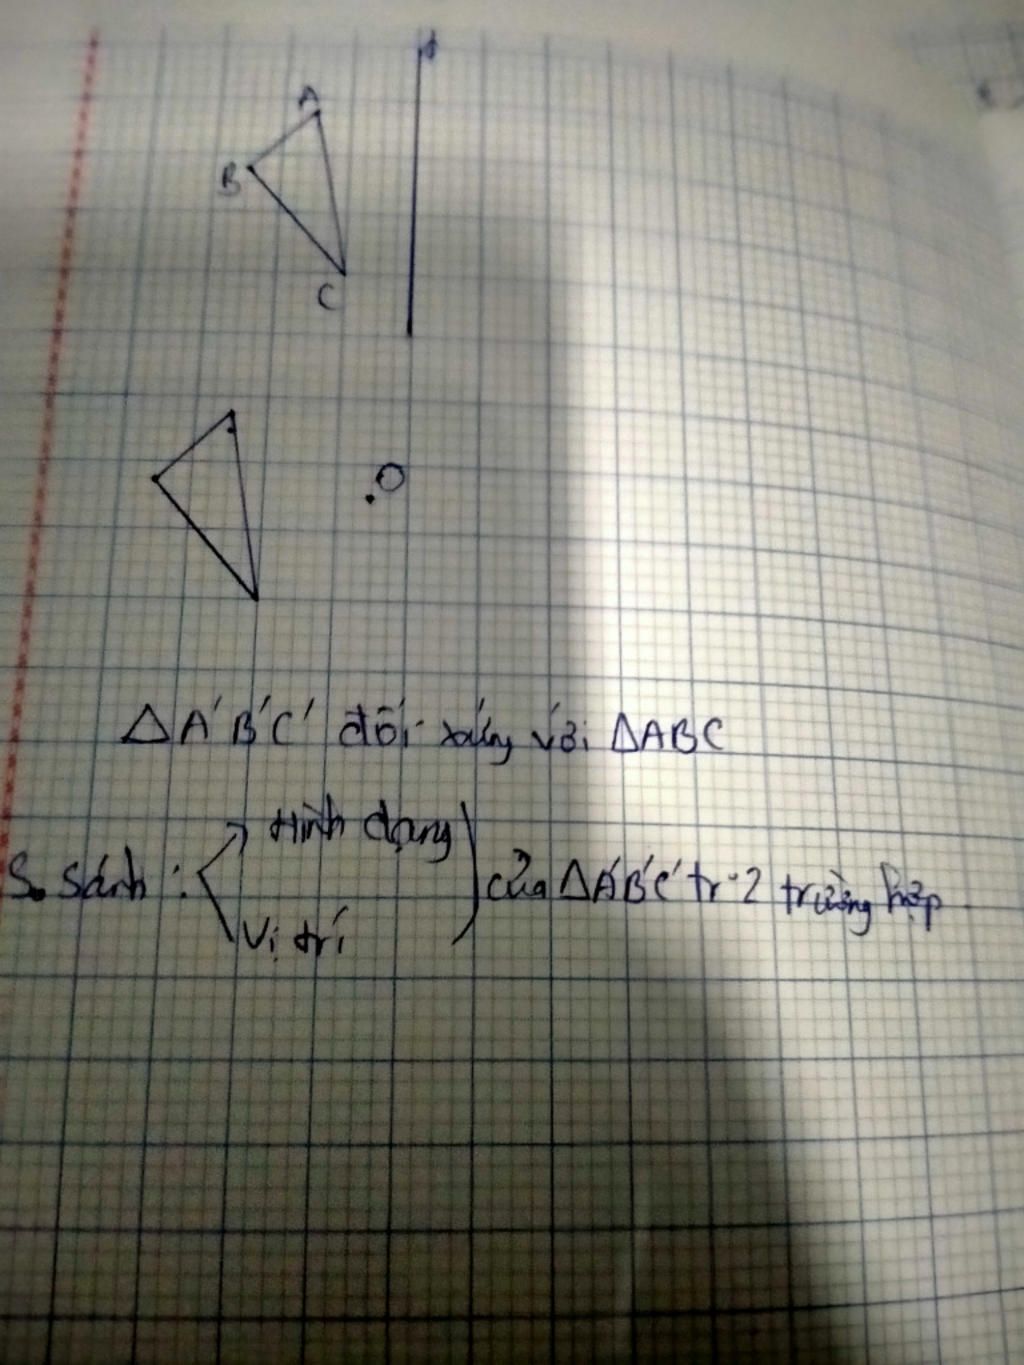 d
A
B
C
O
ΔA'B'C' đối xứng với ΔABC
S. sánh : Hình dạng
Vị trí
của ΔA'B'C' tr 2 trường hợp